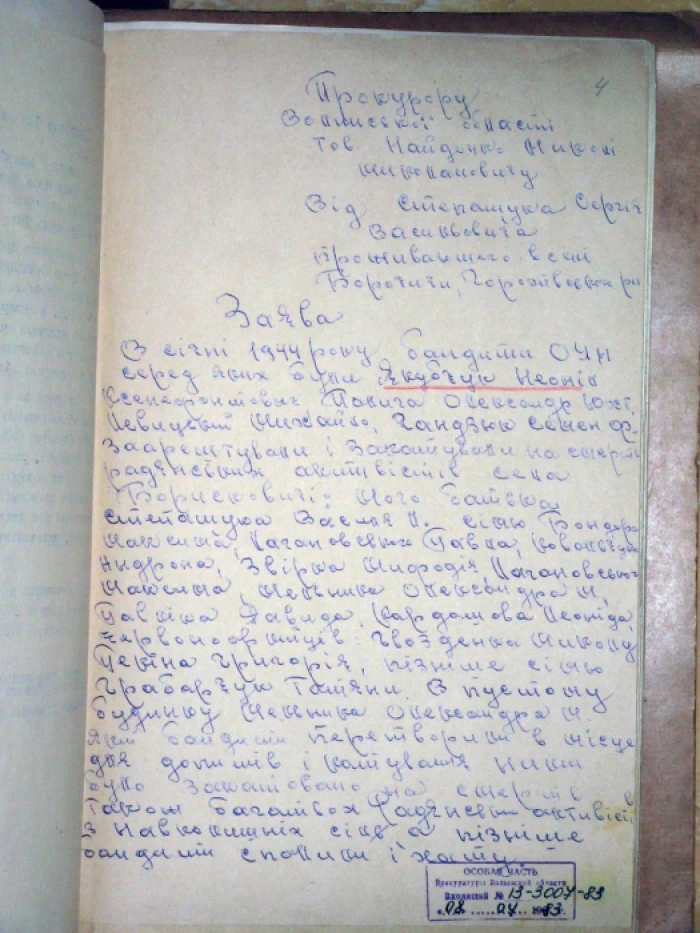 4
Прокурору
Волинської області
тов Найденко Миколі
Миколайовичу
Від Степашука Сергія
Васильовича
проживающого в селі
Борочичи, Горохівського р
Заява
В січні 1944 року бандити ОУН
серед яких були Якубчук Леонід
Ксенофонтович Олександр Юхт.
Левицький Михайло, Гандзюк Семен Ф.
Заарештували і закатували на смерть
радянських активістів села
Борисковичі: мого батька
Степашука Василя сімю Бондара
Максима, Кагановського Павла, Ковальчука
Андрона, Звірка Мифодія Кагановського
Максима, Мельника Олександра М,
Давида, Кардашова Леоніда
червоноармійців: Гвозденка Миколу
Григорія, пізніше сімю
Грабарчук Татяни. В пустому
будинку Мельника Олександра М.
який бандити перетворили в місце
для допитів і катування ними
було закатовано на смерть в
такох багатьох радянських активістів
з навколишніх сіл, а пізніше
бандити спалили і хату.
ОСОБАЯ ЧАСТЬ
Прокуратура Волынской области
Входящий № 13-3007-83
08 04 1983 г.